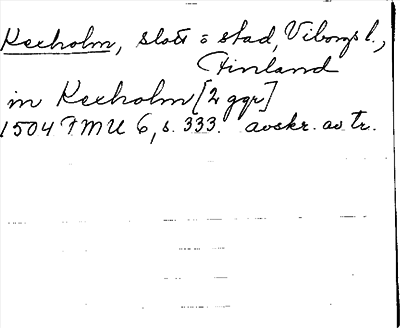 Kexholm, slott o stad, Viborgs l.,
Finland
in Kexholm [2 ggr]
1504 FMU 6, s. 333. avskr. av tr.